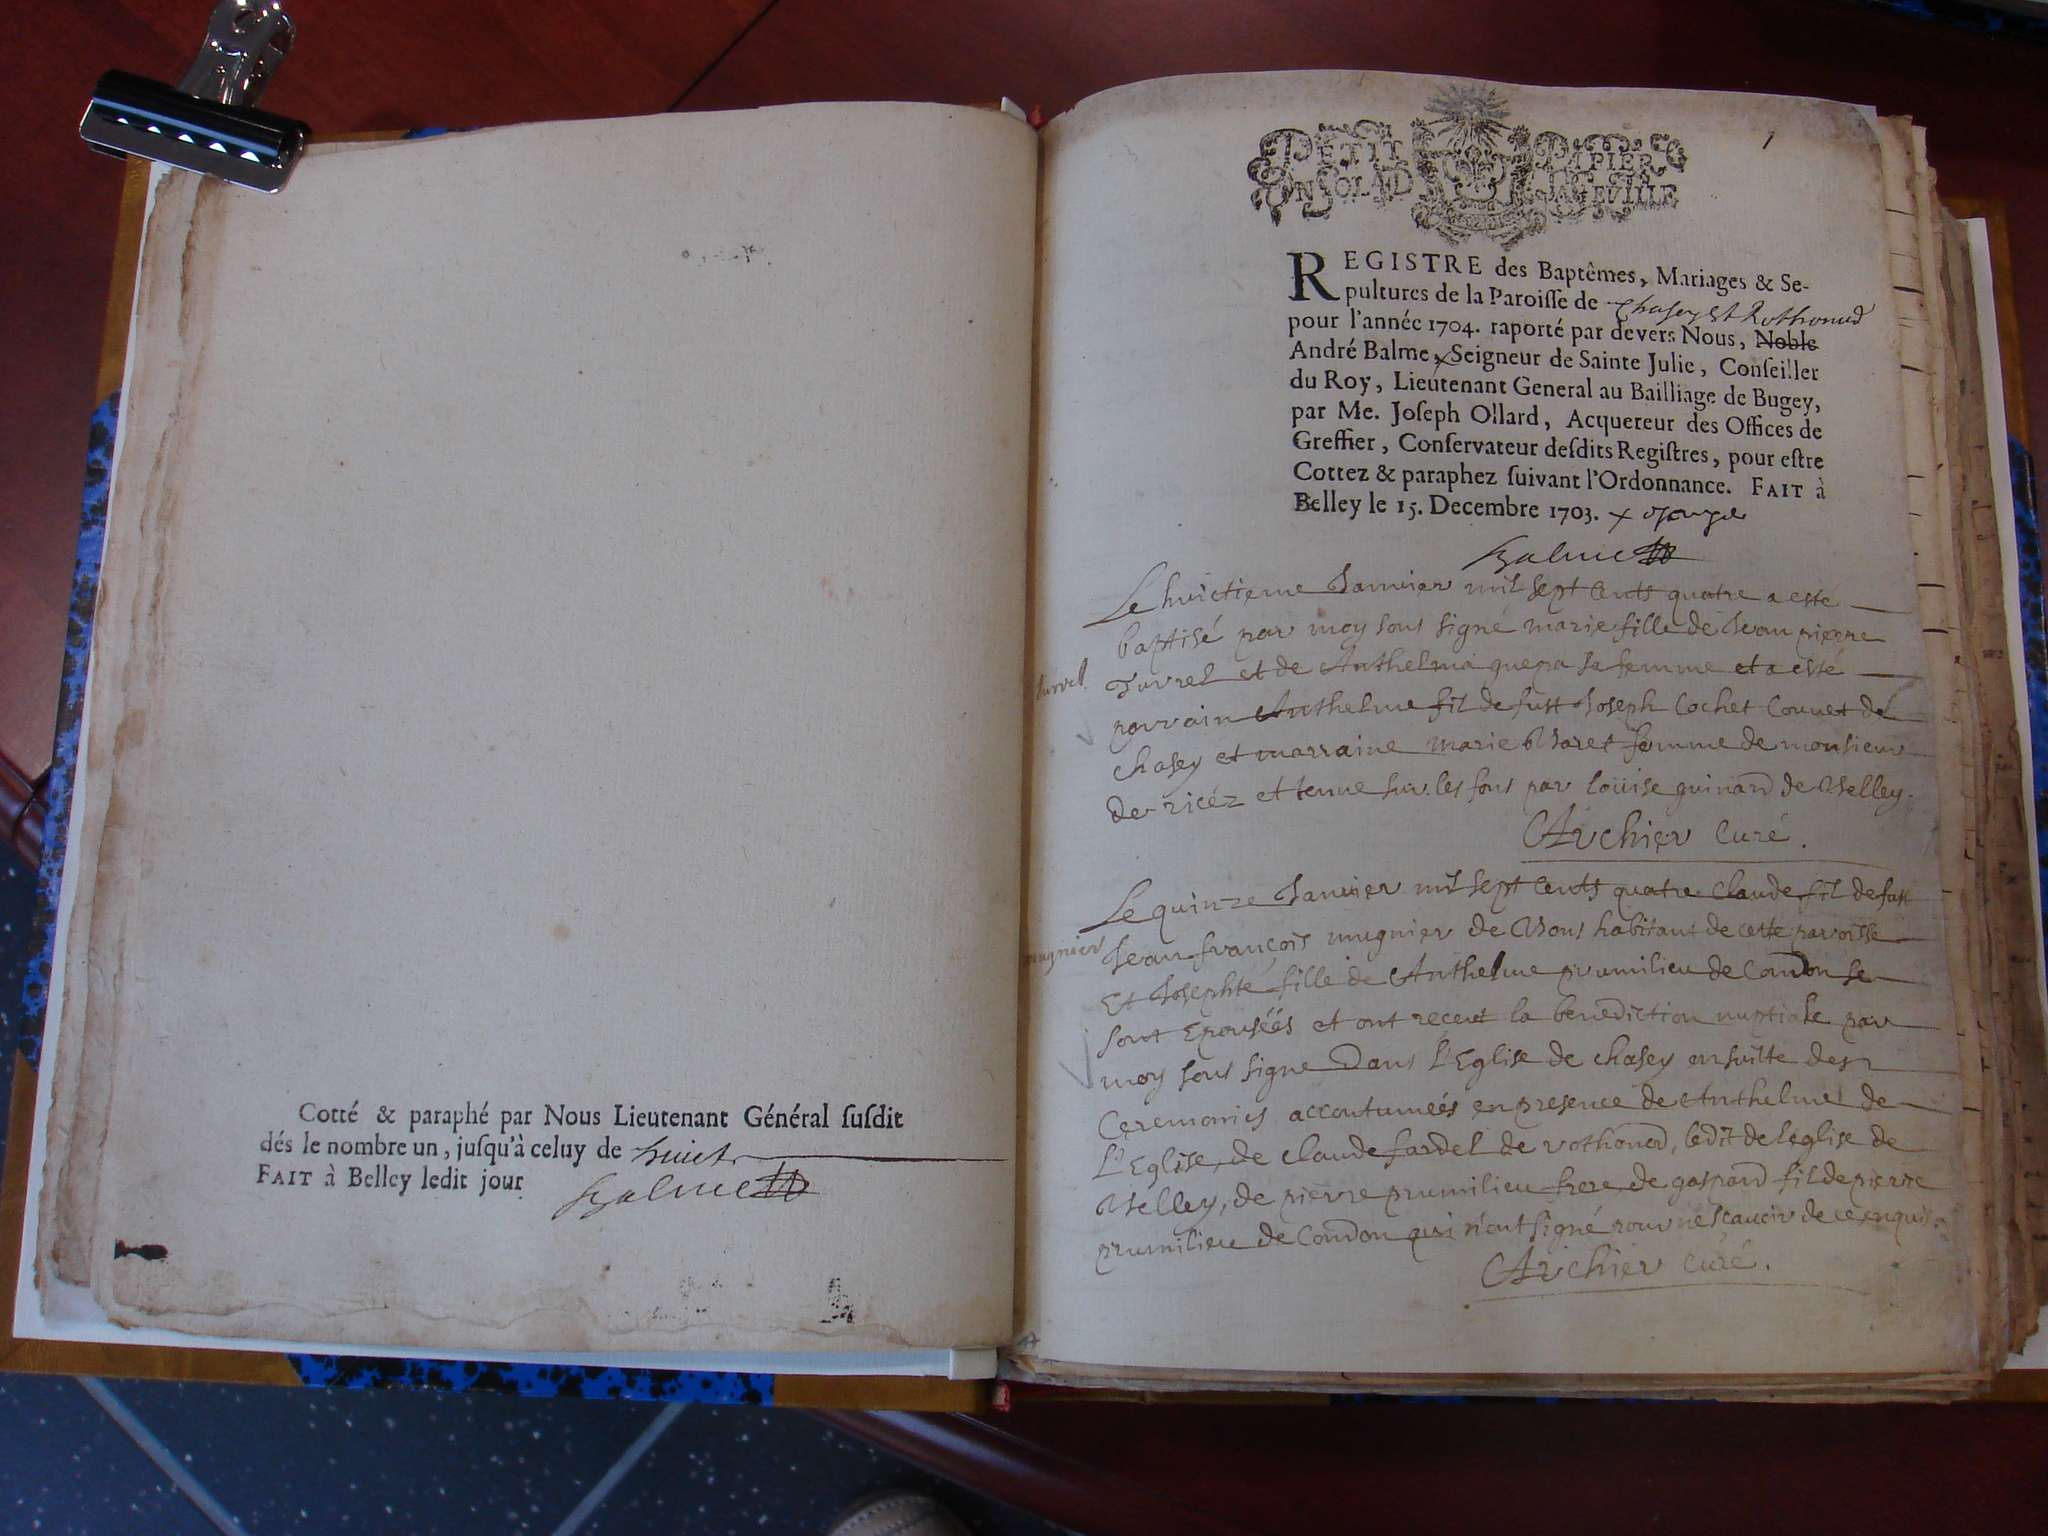 Cotté & paraphé par Nous Lieutenant Général susdit
dés le nombre un, jusqu'à celuy de huict
FAIT à Belley ledit jour
Balme
1
PETIT PAPIER
UN SOL LA FEUILLE
REGISTRE des Baptêmes, Mariages & Se-
pultures de la Paroisse de Chasey et Rothonod
pour l'année 1704. raporté par devers Nous, Noble
André Balme, x Seigneur de Sainte Julie, Conseiller
du Roy, Lieutenant General au Bailliage de Bugey,
par Me. Joseph Ollard, Acquereur des Offices de
Greffier, Conservateur desdits Registres, pour estre
Cottez & paraphez suivant l'Ordonnance. FAIT à
Belley le 15. Decembre 1703. x
Balme
Le huictieme Janvier mil sept cents quatre a esté
baptisé par moy sous signé marie fille de Jean pierre
turrel
Turrel et de Anthelma guepa sa femme et a esté
parrain Anthelme fil de fust Joseph Cochet Couvet de
chasey et marraine marie femme de monsieur
de ricéz et tenue sur les fons par loüise guinard de Velley.
Archier Curé.
Le quinze Janvier mil sept cents quatre claude fil de fust
mugnier
Jean françois mugnier de Vons habitant de cette parroisse
Et Josephte fille de Anthelme prumilieu de Condon se
sont Epouséés et ont receut la benediction nuptiale par
moy sous signe Dans l'Eglise de chasey ensuitte des
Ceremonies accoutumeés en presence de Anthelme de
l'Eglise, de claude fardel de rothonod, ledit de leglise de
Velley, de pierre prumilieu frere, de gaspard fil de pierre
prumilieu de Condon qui n'ont signé pour ne scauoir de ce enquis.
Archier Curé.